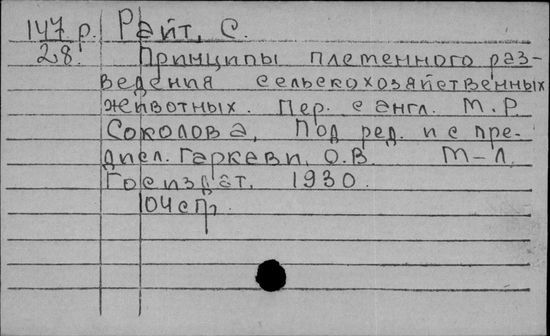 147 р. Райт, С.
28. Принципы племенного раз-
ведения сельскохозяйственных
животных. Пер. с англ. М.Р.
Соколова, Под ред. и с пре-
дисл. Гаркави, О.В. М-Л,
Госиздат, 1930.
104 стр.